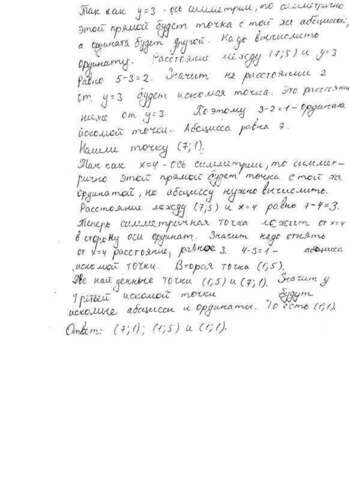 Так как y=3 - ось симметрии, то симметрично
этой прямой будет точка с той же абсциссой,
а ордината будет другой. Надо вычислить
ординату. Расстояние между (7;5) и y=3
равно 5-3=2. Значит на расстоянии 2
от y=3 будет искомая точка. Это расстояние
ниже от y=3. Поэтому 3-2=1- ордината
искомой точки. Абсцисса равна 7.
Нашли точку (7;1).
Так как x=4 - ось симметрии, то симмет-
рично этой прямой будет точка с той же
ординатой, но абсциссу нужно вычислить.
Расстояние между (7;5) и x=4 равно 7-4=3.
Теперь симметричная точка лежит от x=4
в сторону оси ординат. Значит надо отнять
от x=4 расстояние, равное 3. 4-3=1- абсцисса
искомой точки. Вторая точка (1;5).
Две найденные точки (1;5) и (7;1). Значит у
третьей искомой точки будут
искомые абсцисса и ордината. То есть (1;1).
Ответ: (7;1); (1;5) и (1;1).